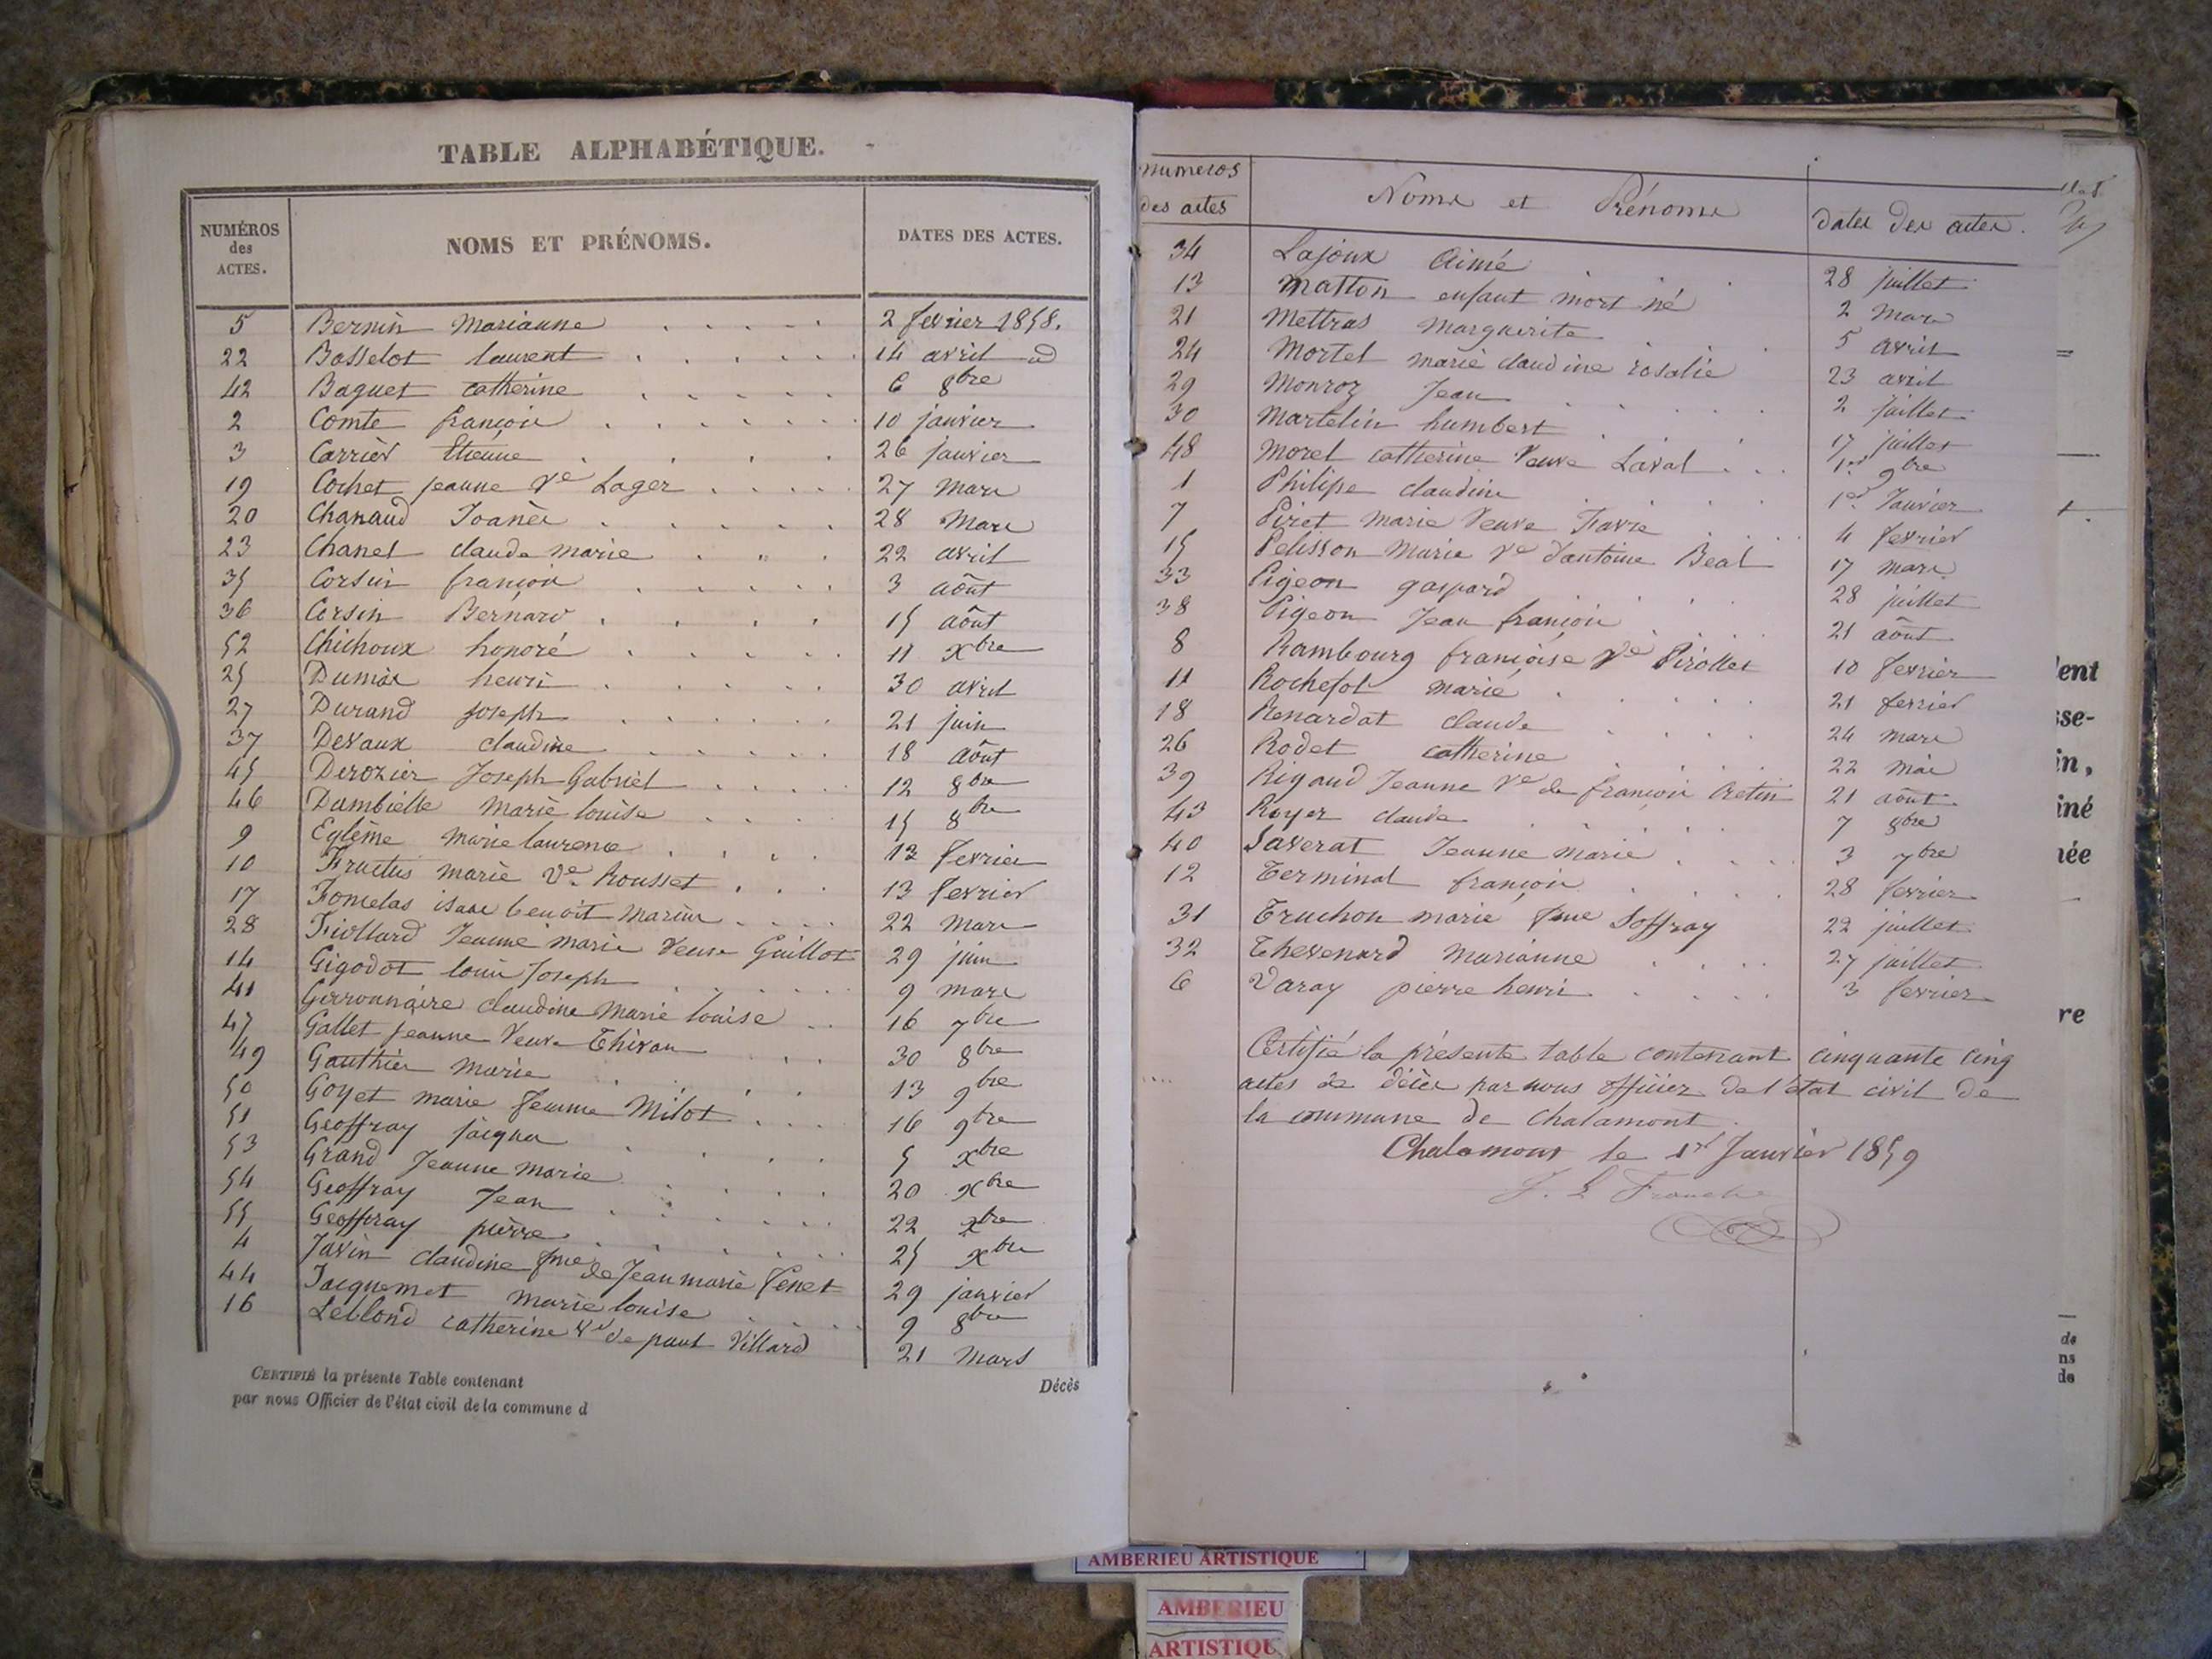 TABLE ALPHABÉTIQUE.
NUMÉROS des ACTES. NOMS ET PRÉNOMS. DATES DES ACTES.
5 Bernin Marianne 2 fevrier 1858.
22 Bosselot laurent 14 avril id
42 Baguet catherine 6 8bre
2 Comte françois 10 janvier
3 Carrier Etienne 26 janvier
19 Cochet jeanne Ve Lager 27 Mars
20 Chanaud Joanès 28 Mars
23 Chanel claude marie 22 avril
35 Corsin françois 3 août
36 Corsin Bernard 15 août
52 Chichoux honoré 11 xbre
25 Dumas henri 30 avril
27 Durand joseph 21 juin
37 Devaux claudine 18 août
45 Derozier Joseph Gabriel 12 8bre
46 Dambielle marie louise 15 8bre
9 Eglème marie laurence 12 fevrier
10 Fructus marie Ve Rousset 13 fevrier
17 Fomelas isaac benoit Marius 22 Mars
28 Fiollard Jeanne marie Veuve Guillot 29 juin
14 Gigodot louis Joseph 9 mars
41 Gerronnaire claudine Marie louise 16 7bre
47 Gallet jeanne Veuve Thivan 30 8bre
49 Gauthier Marie 13 9bre
50 Goyet marie femme Milot 16 9bre
51 Geoffray jacques 5 xbre
53 Grand Jeanne Marie 20 xbre
54 Geoffray Jean 22 xbre
55 Geoffray pierre 25 xbre
4 Javin claudine fme de Jean marie Venet 29 janvier
44 Jacquemet Marie louise 9 8bre
16 Leblond catherine Ve de paul Villard 21 Mars
CERTIFIÉ la présente Table contenant Décès
par nous Officier de l'état civil de la commune d
numeros des actes Noms et Prénoms dates des actes.
34 Lajoux Aimé 28 juillet
13 Matton enfant mort né 2 Mars
21 Mettras Marguerite 5 avril
24 Mortel marie claudine rosalie 23 avril
29 Monroz Jean 2 juillet
30 Martelin humbert 17 juillet
48 Morel catherine Veuve Laval 1er 9bre
1 Philipe claudine 1er Janvier
7 Piret Marie Veuve Favre 4 fevrier
15 Pelisson Marie Ve d'antoine Béal 17 mars
33 Pigeon gaspard 28 juillet
38 Pigeon Jean françois 21 août
8 Rambourg françoise Ve Pirollet 10 fevrier
11 Rochefol marie 21 fevrier
18 Renardat claude 24 mars
26 Rodet catherine 22 mai
39 Rigaud Jeanne Ve de françois Cretin 21 août
43 Royer claude 7 8bre
40 Saverat Jeanne marie 3 7bre
12 Terminal françois 28 fevrier
31 Truchon marie fme Joffray 22 juillet
32 Thevenard Marianne 27 juillet
6 Varay pierre henri 3 fevrier
Certifié la présente table contenant cinquante cinq
actes de décès par nous officier de l'état civil de
la commune de Chalamont.
Chalamont le 1er Janvier 1859
ent
sse-
in,
iné
née
re
de
ns
de
AMBERIEU ARTISTIQUE
AMBERIEU
ARTISTIQU